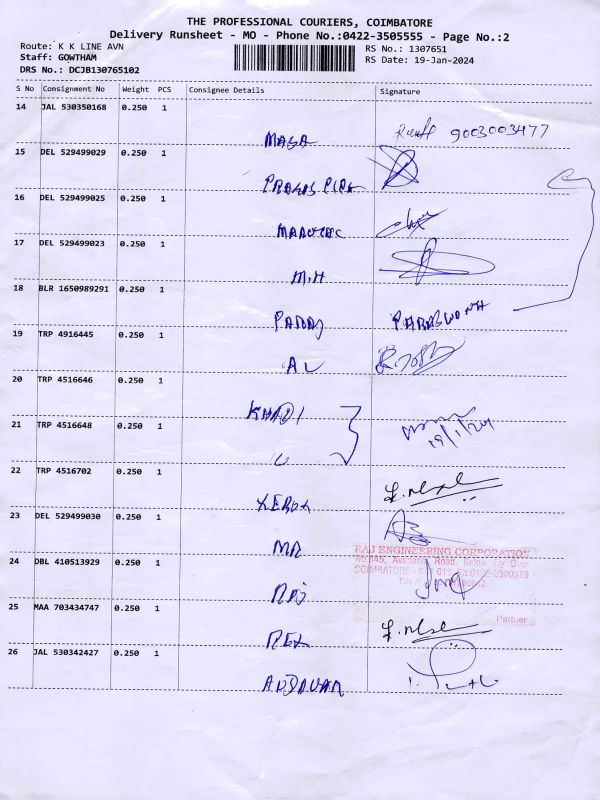 THE PROFESSIONAL COURIERS, COIMBATORE
Delivery Runsheet - MO - Phone No.:0422-3505555 - Page No.:2
Route: K K LINE AVN
RS No.: 1307651
Staff: GOWTHAM
RS Date: 19-Jan-2024
DRS No.: DCJB130765102
S No Consignment No Weight PCS Consignee Details Signature
14 JAL 530350168 0.250 1
MAGA 9003003477
15 DEL 529499029 0.250 1
16 DEL 529499025 0.250 1
17 DEL 529499023 0.250 1
M.H
18 BLR 1650989291 0.250 1
19 TRP 4916445 0.250 1
AL
20 TRP 4516646 0.250 1
KHADI
21 TRP 4516648 0.250 1
19/1/24
22 TRP 4516702 0.250 1
XEROX
23 DEL 529499030 0.250 1
MR
RAJ ENGINEERING CORPORATION
24 DBL 410513929 0.250 1
No.645, Avinashi Road, Below Fly Over
COIMBATORE
RAJ
25 MAA 703434747 0.250 1
Partner
REX
26 JAL 530342427 0.250 1